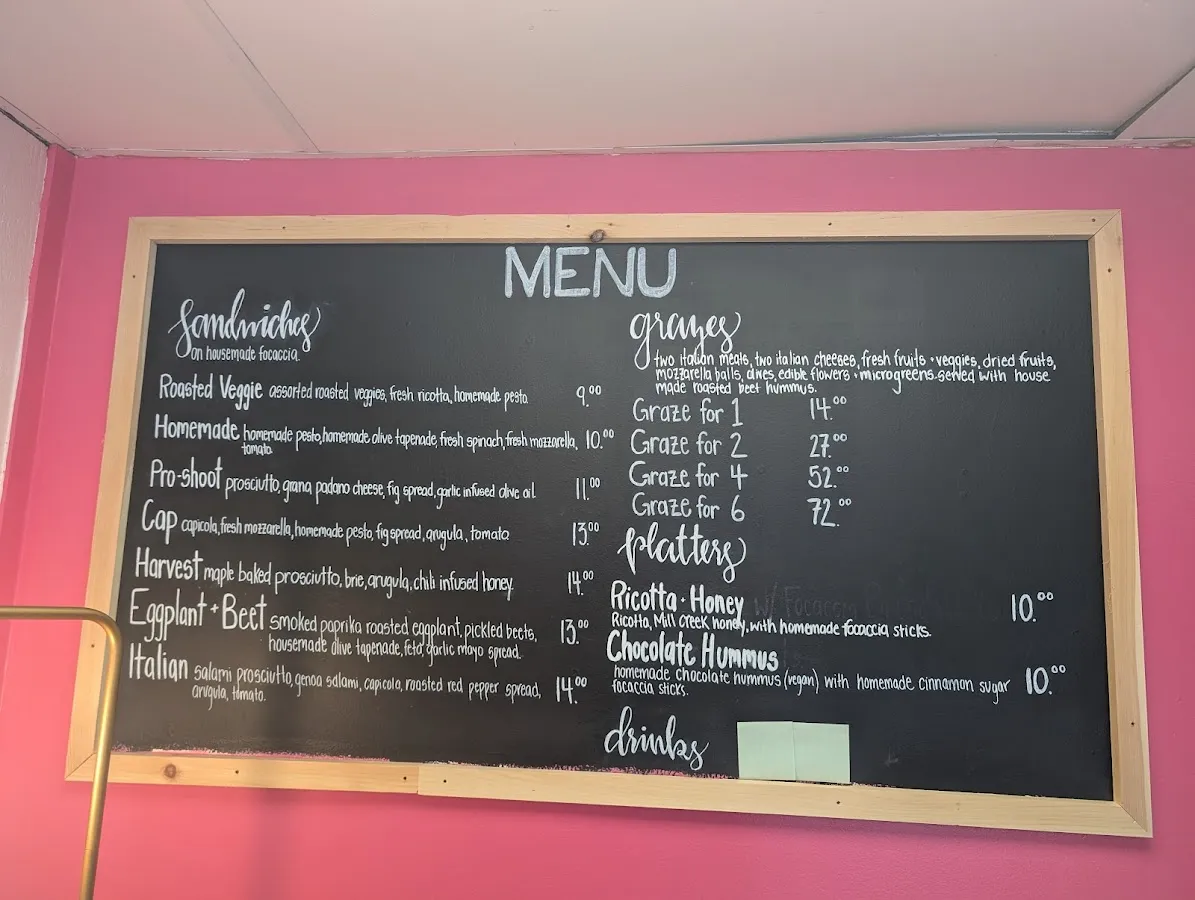 MENU
Sandwiches
on housemade focaccia.
Roasted Veggie assorted roasted veggies, fresh ricotta, homemade pesto 9.00
Homemade homemade pesto, homemade olive tapenade, fresh spinach, fresh mozzarella, 10.00
tomato.
Pro-shoot prosciutto, grana padano cheese, fig spread, garlic infused olive oil 11.00
Cap capicola, fresh mozzarella, homemade pesto, fig spread, arugula, tomato 13.00
Harvest maple baked prosciutto, brie, arugula, chili infused honey. 14.00
Eggplant + Beet smoked paprika roasted eggplant, pickled beets, 13.00
housemade olive tapenade, feta, garlic mayo spread.
Italian salami prosciutto, genoa salami, capicola, roasted red pepper spread, 14.00
arugula, tomato.
grazes
two italian meats, two italian cheeses, fresh fruits + veggies, dried fruits,
mozzarella balls, olives, edible flowers + microgreens. served with house
made roasted beet hummus.
Graze for 1 14.00
Graze for 2 27.00
Graze for 4 52.00
Graze for 6 72.00
platters
Ricotta + Honey w/ Focaccia 10.00
Ricotta, Mill Creek honey, with homemade focaccia sticks.
Chocolate Hummus
homemade chocolate hummus (vegan) with homemade cinnamon sugar 10.00
focaccia sticks.
drinks